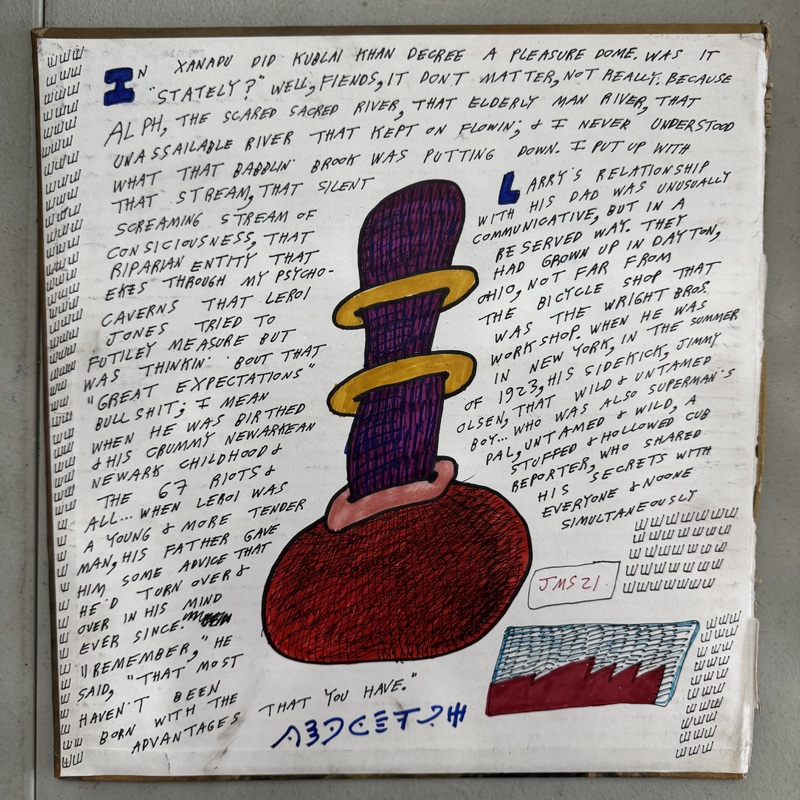 IN XANADU DID KUBLAI KHAN DECREE A PLEASURE DOME. WAS IT
"STATELY?" WELL, FIENDS, IT DON'T MATTER, NOT REALLY. BECAUSE
ALPH, THE SCARED SACRED RIVER, THAT ELDERLY MAN RIVER, THAT
UNASSAILABLE RIVER THAT KEPT ON FLOWIN; & I NEVER UNDERSTOOD
WHAT THAT BABBLIN' BROOK WAS PUTTING DOWN. I PUT UP WITH
THAT STREAM, THAT SILENT
SCREAMING STREAM OF
CONSICIOUSNESS, THAT
RIPARIAN ENTITY THAT
EKES THROUGH MY PSYCHO-
CAVERNS THAT LEROI
JONES TRIED TO
FUTILEY MEASURE BUT
WAS THINKIN' 'BOUT THAT
"GREAT EXPECTATIONS"
BULLSHIT; I MEAN
WHEN HE WAS BIRTHED
& HIS CRUMMY NEWARKEAN
NEWARK CHILDHOOD &
THE 67 RIOTS &
ALL... WHEN LEROI WAS
A YOUNG & MORE TENDER
MAN, HIS FATHER GAVE
HIM SOME ADVICE THAT
HE'D TURN OVER &
OVER IN HIS MIND
EVER SINCE.
"REMEMBER," HE
SAID, "THAT MOST
HAVEN'T BEEN
BORN WITH THE
ADVANTAGES THAT YOU HAVE."
LARRY'S RELATIONSHIP
WITH HIS DAD WAS UNUSUALLY
COMMUNICATIVE, BUT IN A
RESERVED WAY. THEY
HAD GROWN UP IN DAYTON,
OHIO, NOT FAR FROM
THE BICYCLE SHOP THAT
WAS THE WRIGHT BROS.
WORKSHOP. WHEN HE WAS
IN NEW YORK, IN THE SUMMER
OF 1923, HIS SIDEKICK, JIMMY
OLSEN, THAT WILD & UNTAMED
BOY... WHO WAS ALSO SUPERMAN'S
PAL, UNTAMED & WILD, A
STUFFED & HOLLOWED CUB
REPORTER, WHO SHARED
HIS SECRETS WITH
EVERYONE & NOONE
SIMULTANEOUSLY
JMS21.